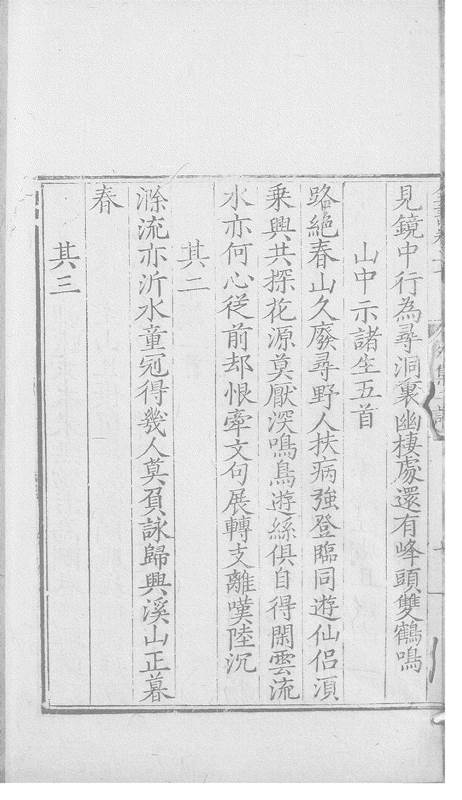 見鏡中行為尋洞裏幽棲處還有峰頭雙鶴鳴
山中示諸生五首
路絕春山久廢尋野人扶病強登臨同遊仙侶須
乘興共探花源莫厭深鳴鳥遊絲俱自得閒雲流
水亦何心從前却恨牽文句展轉支離嘆陸沉
其二
滁流亦沂水童冠得幾人莫負詠歸興溪山正暮
春
其三